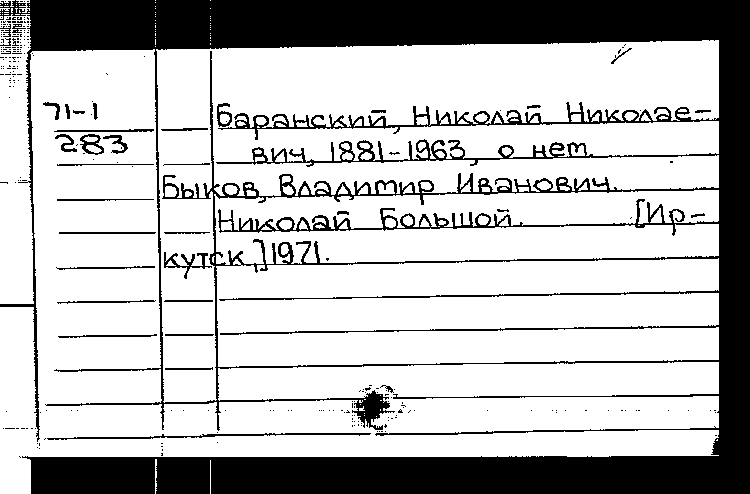 71-1
283
Баранский, Николай Николае-
вич, 1881-1963, о нем.
Быков, Владимир Иванович.
Николай Большой. [Ир-
кутск,] 1971.